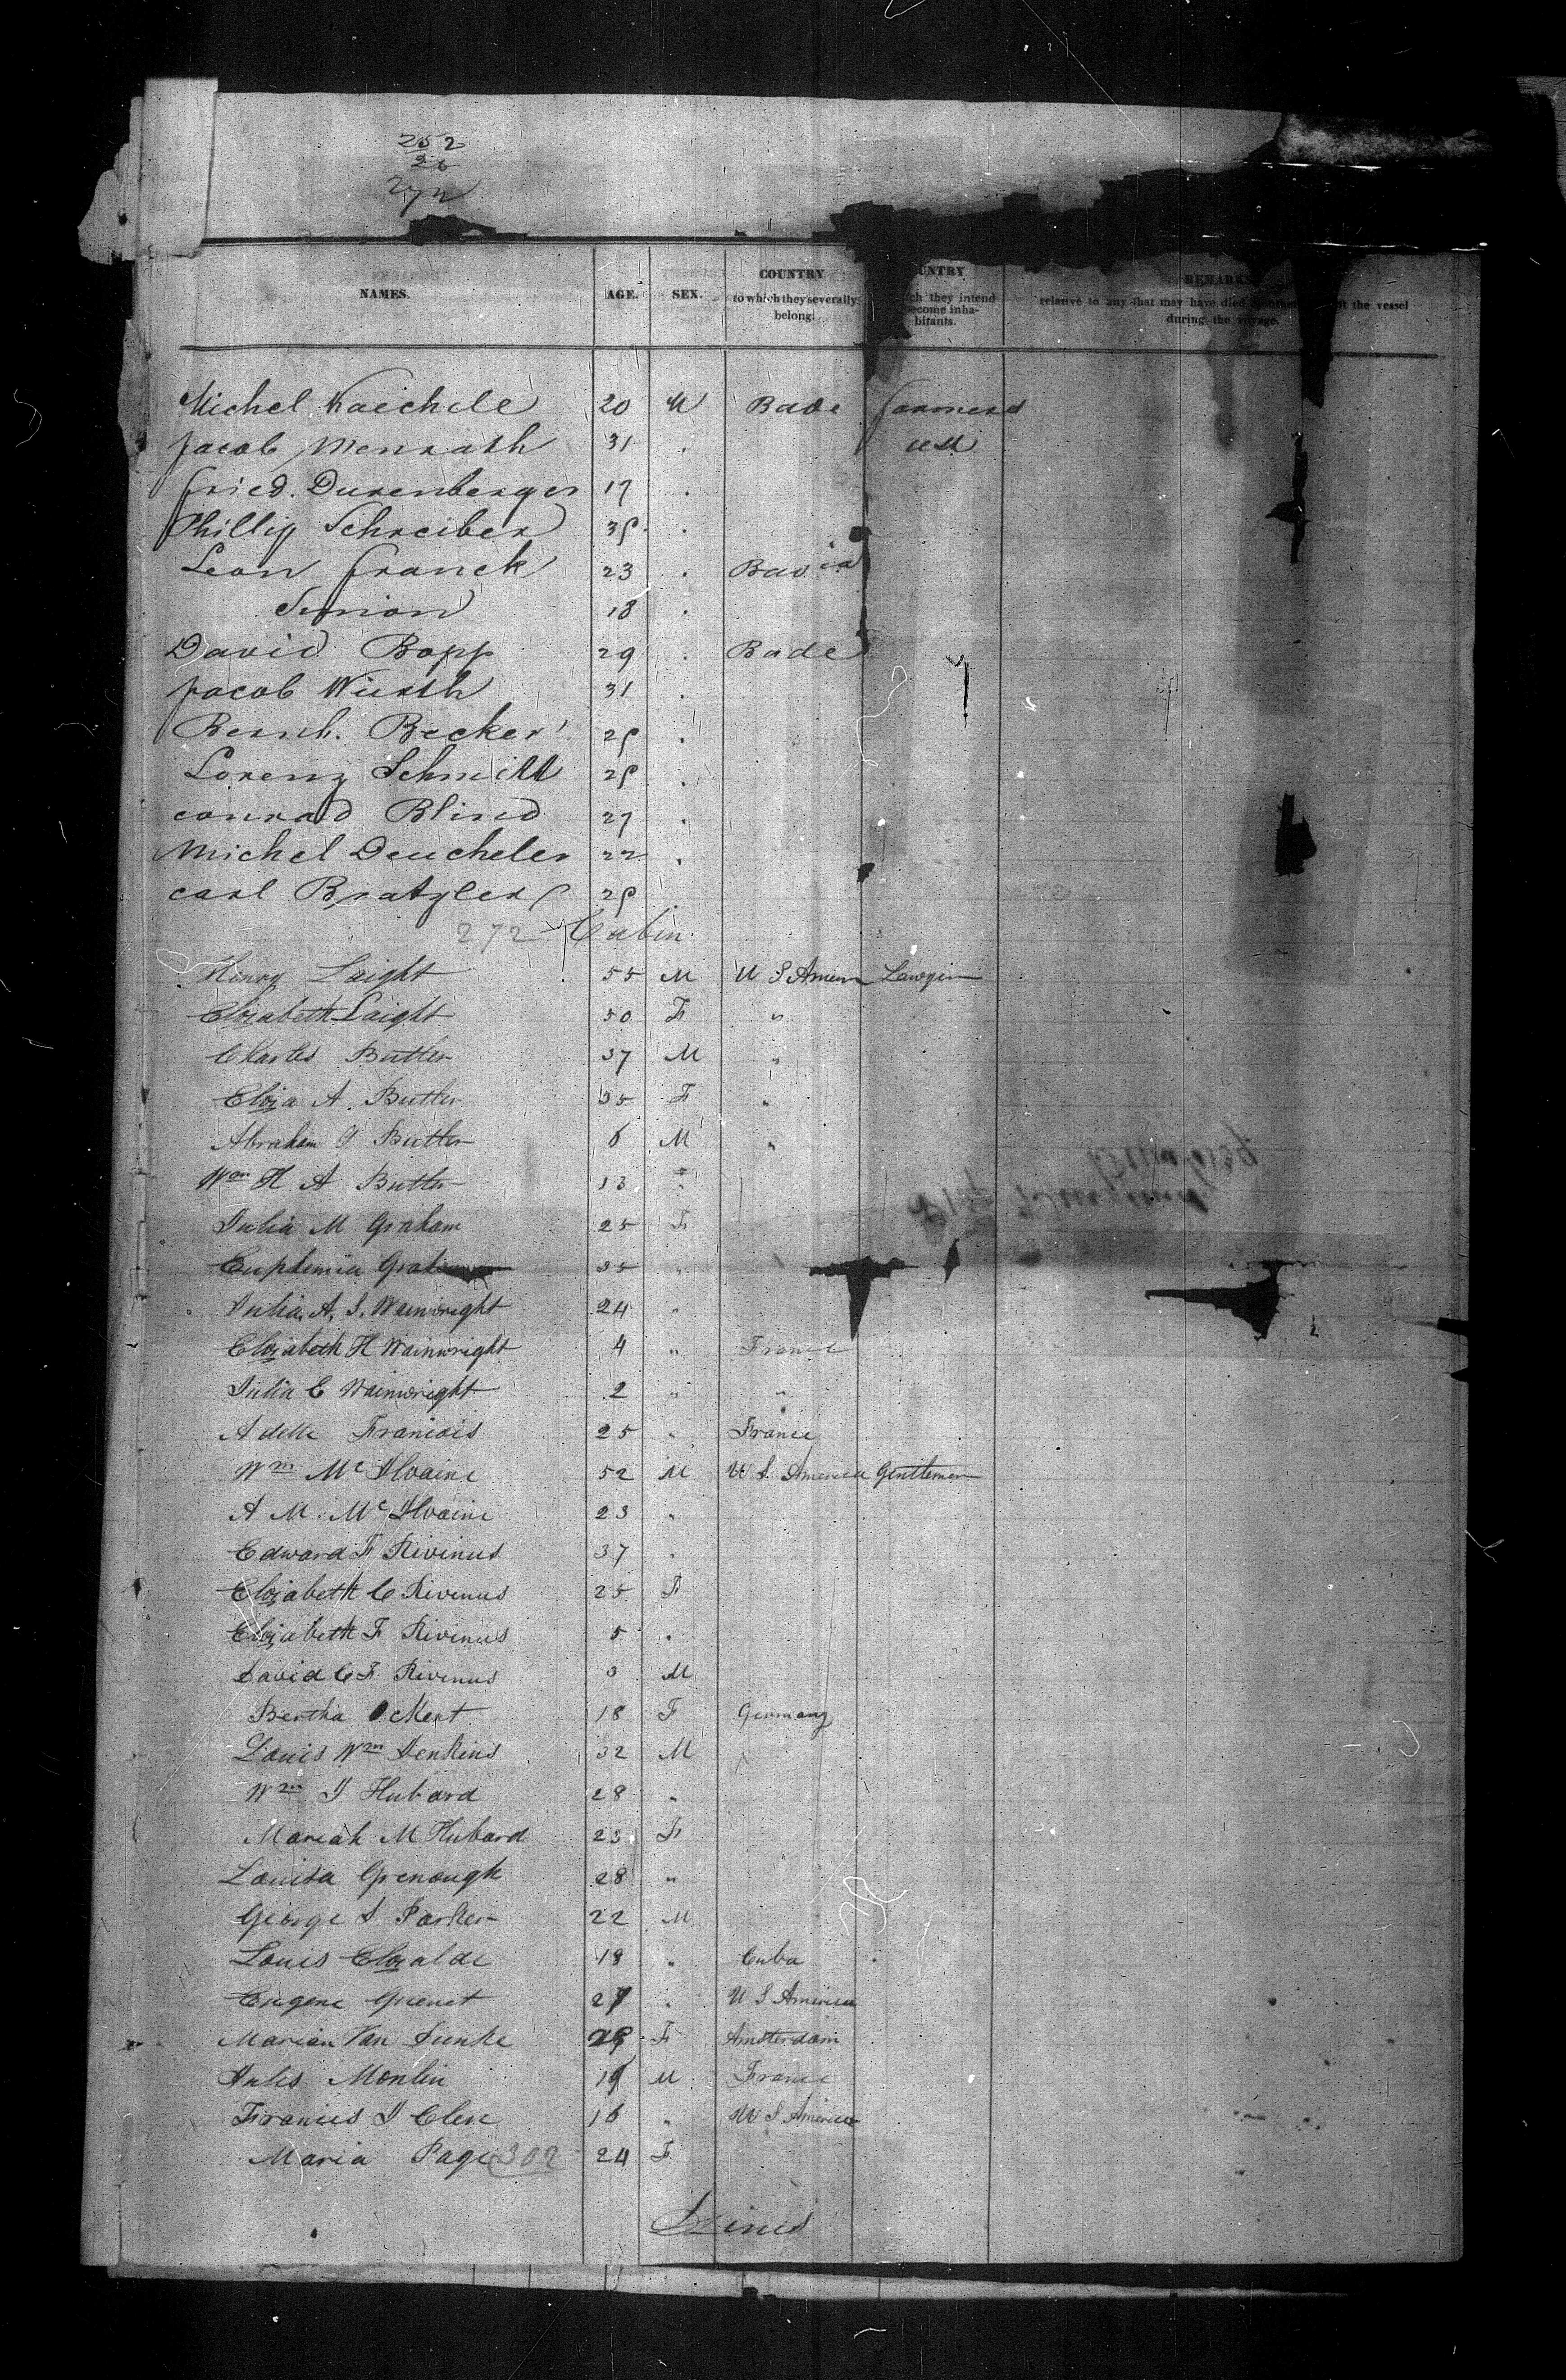 252
20
272
NAMES. AGE. SEX. COUNTRY to which they severally belong. UNTRY ch they intend ecome inha- bitants. REMARKS relative to any that may have died the vessel during the voyage.
Michel Kaechele 20 M Bade farmers
Jacob Menrath 31 . USA
fried. Durenberger 17 .
Phillip Schreiber 35 .
Leon franck 23 . Bavia
Simion 18 .
David Bopp 29 . Bade
Jacob Wurth 31 .
Bernh. Becker 25 .
Lorenz Schmitt 25 .
conrad Blind 27 .
Michel Deucheler 22 .
carl Bratzler 25 .
272 Cabin
Henry Laight 55 M U S Amer Lawyer
Elizabeth Laight 50 F "
Charles Butler 37 M "
Eliza A. Butler 35 F "
Abraham O Butler 6 M "
Wm H A Butler 13 "
Julia M Graham 25 F
Euphemia Graham 35 "
Julia A. S. Wainwright 24 "
Elizabeth H Wainwright 4 " France
Julia E Wainwright 2 " "
Adelle Francois 25 " France
Wm Mc Ilvaine 52 M U S. America Gentleman
A M. Mc Ilvaine 23 "
Edward F Rivinus 37 .
Elizabeth C Rivinus 25 F
Elizabeth F Rivinus 5 .
David C F. Rivinus 3 M
Bertha Ockert 18 F Germany
Louis Wm Jenkins 32 M
Wm J Hubard 28 "
Mariah M Hubard 23 F
Louisa Grenough 28 "
George S Parker 22 M
Louis Elizalde 18 " Cuba
Eugene Grenet 27 . U S America
Marian Van Dunke F Amsterdam
Jules Monlin 19 M France
Francis J Clere 16 " U S America
Maria Page 302 24 F